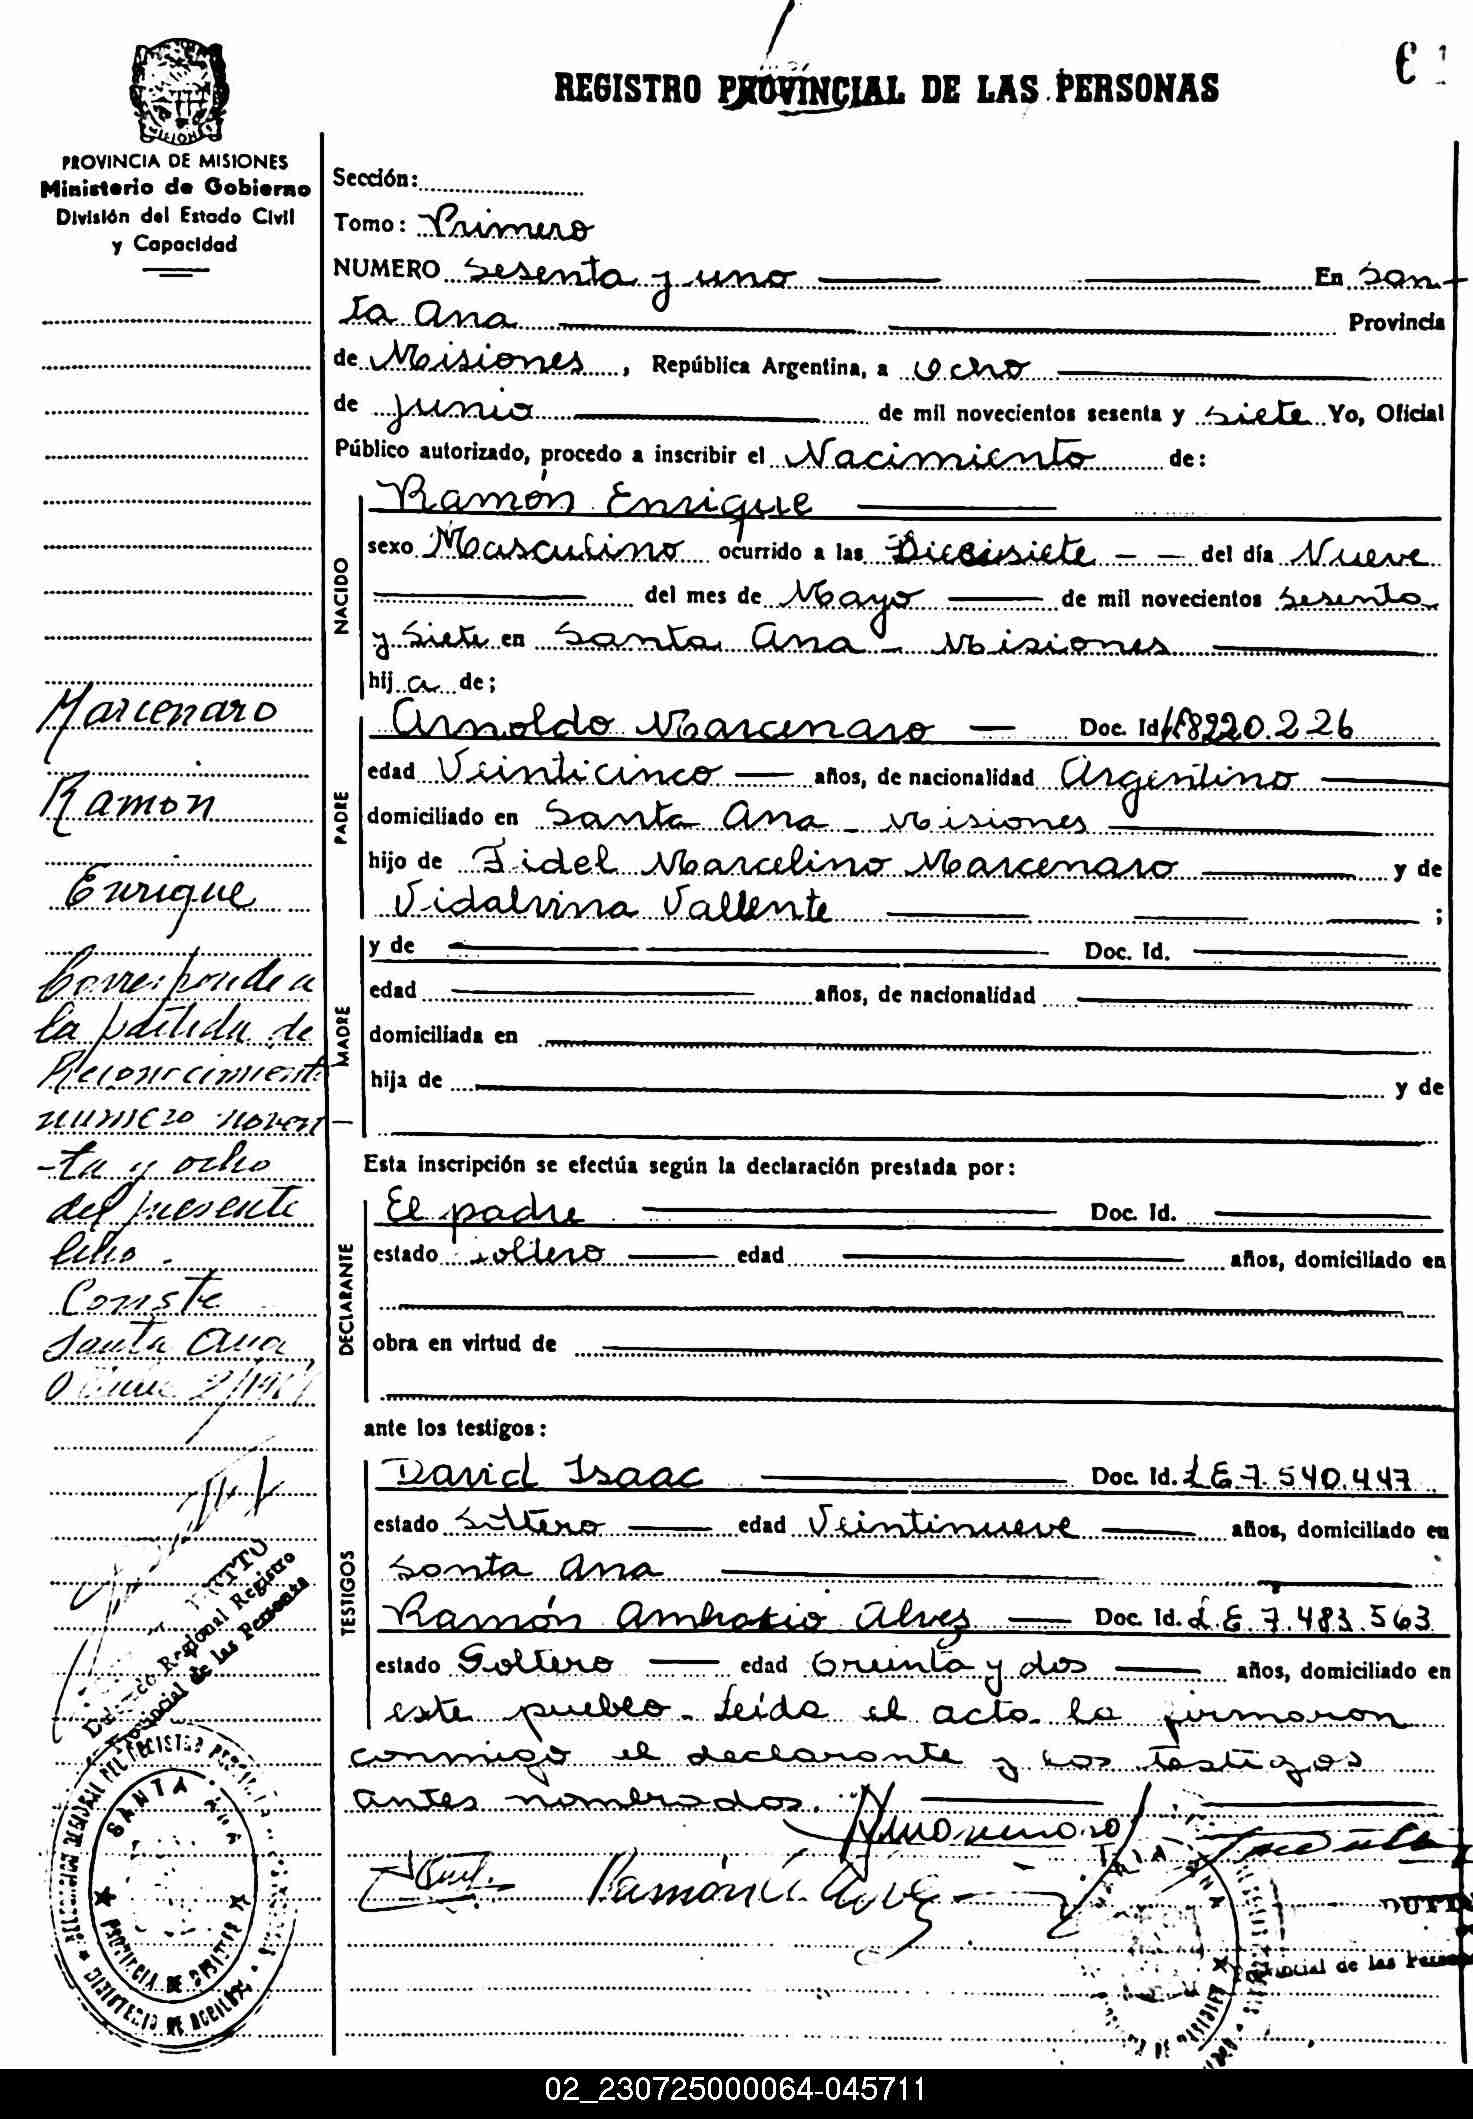 REGISTRO PROVINCIAL DE LAS PERSONAS
PROVINCIA DE MISIONES
Ministerio de Gobierno
División del Estado Civil
y Capacidad
Sección:
Tomo: Primero
NUMERO Sesenta y uno En San-
ta Ana Provincia
de Misiones, República Argentina, a Ocho
de junio de mil novecientos sesenta y siete Yo, Oficial
Público autorizado, procedo a inscribir el Nacimiento de:
NACIDO
Ramón Enrique
sexo Masculino ocurrido a las Diecisiete - - del día Nueve
del mes de Mayo de mil novecientos Sesenta
y Siete en Santa Ana - Misiones
hij a de;
PADRE
Arnoldo Marcenaro - Doc. Id. 8220.226
edad Veinticinco años, de nacionalidad Argentino
domiciliado en Santa Ana - Misiones
hijo de Fidel Marcelino Marcenaro y de
Vidalvina Vallente ;
MADRE
y de Doc. Id.
edad años, de nacionalidad
domiciliada en
hija de y de
Esta inscripción se efectúa según la declaración prestada por:
DECLARANTE
El padre Doc. Id.
estado Soltero edad años, domiciliado en
obra en virtud de
ante los testigos:
TESTIGOS
David Isaac Doc. Id. L E 7.540.447
estado Soltero edad Veintinueve años, domiciliado en
Santa Ana
Ramón Ambrosio Alvez Doc. Id. L E 7.483.563
estado Soltero edad Treinta y dos años, domiciliado en
este pueblo - Leida el acto la firmaron
conmigo el declarante y los testigos
antes nombrados.
Marcenaro
Ramón
Enrique
Corresponde a
la partida de
Reconocimiento
numero noven
-ta y ocho
del presente
libro.
Conste
Santa Ana
Regional Registro
Provincial de las Personas
SANTA ANA
PROVINCIA DE MISIONES
MINISTERIO DE GOBIERNO
Provincial de las Persona
02_230725000064-045711